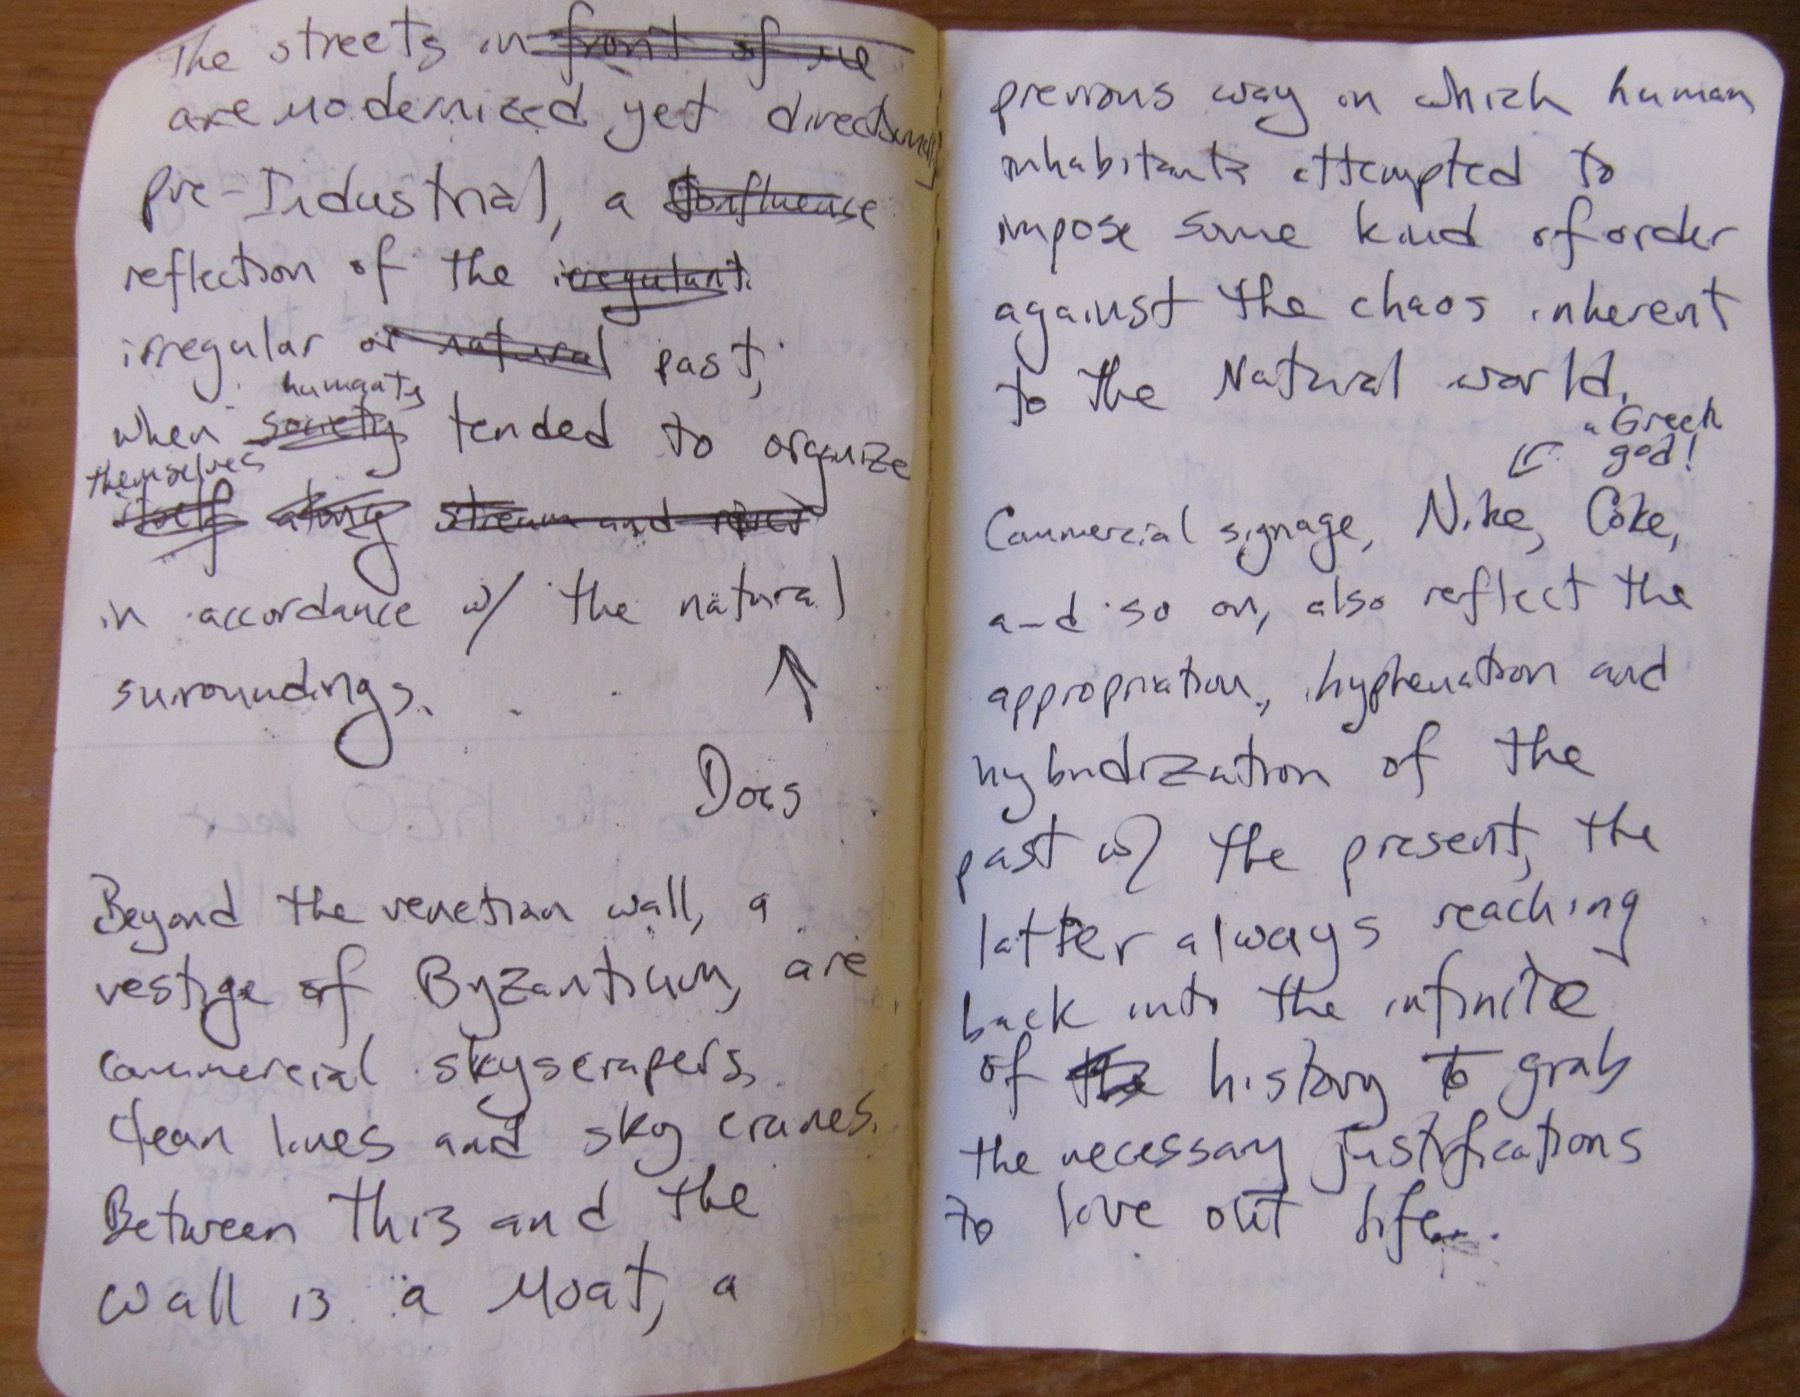 The streets in front of me
are modernized yet directionally
pre-Industrial, a confluence
reflection of the irregulant
irregular or natural past,
humans
when society tended to organize
themselves
itself along stream and river
in accordance w/ the natural
surroundings.
Docs
Beyond the venetian wall, a
vestige of Byzantium, are
commercial skyscrapers,
clean lines and sky cranes.
Between this and the
wall is a moat, a
previous way in which human
inhabitants attempted to
impose some kind of order
against the chaos inherent
to the Natural world.
a Greek
god!
Commercial signage, Nike, Coke,
and so on, also reflect the
appropriation, hyphenation and
hybridization of the
past w/ the present, the
latter always reaching
back into the infinite
of the history to grab
the necessary justifications
to love out life.